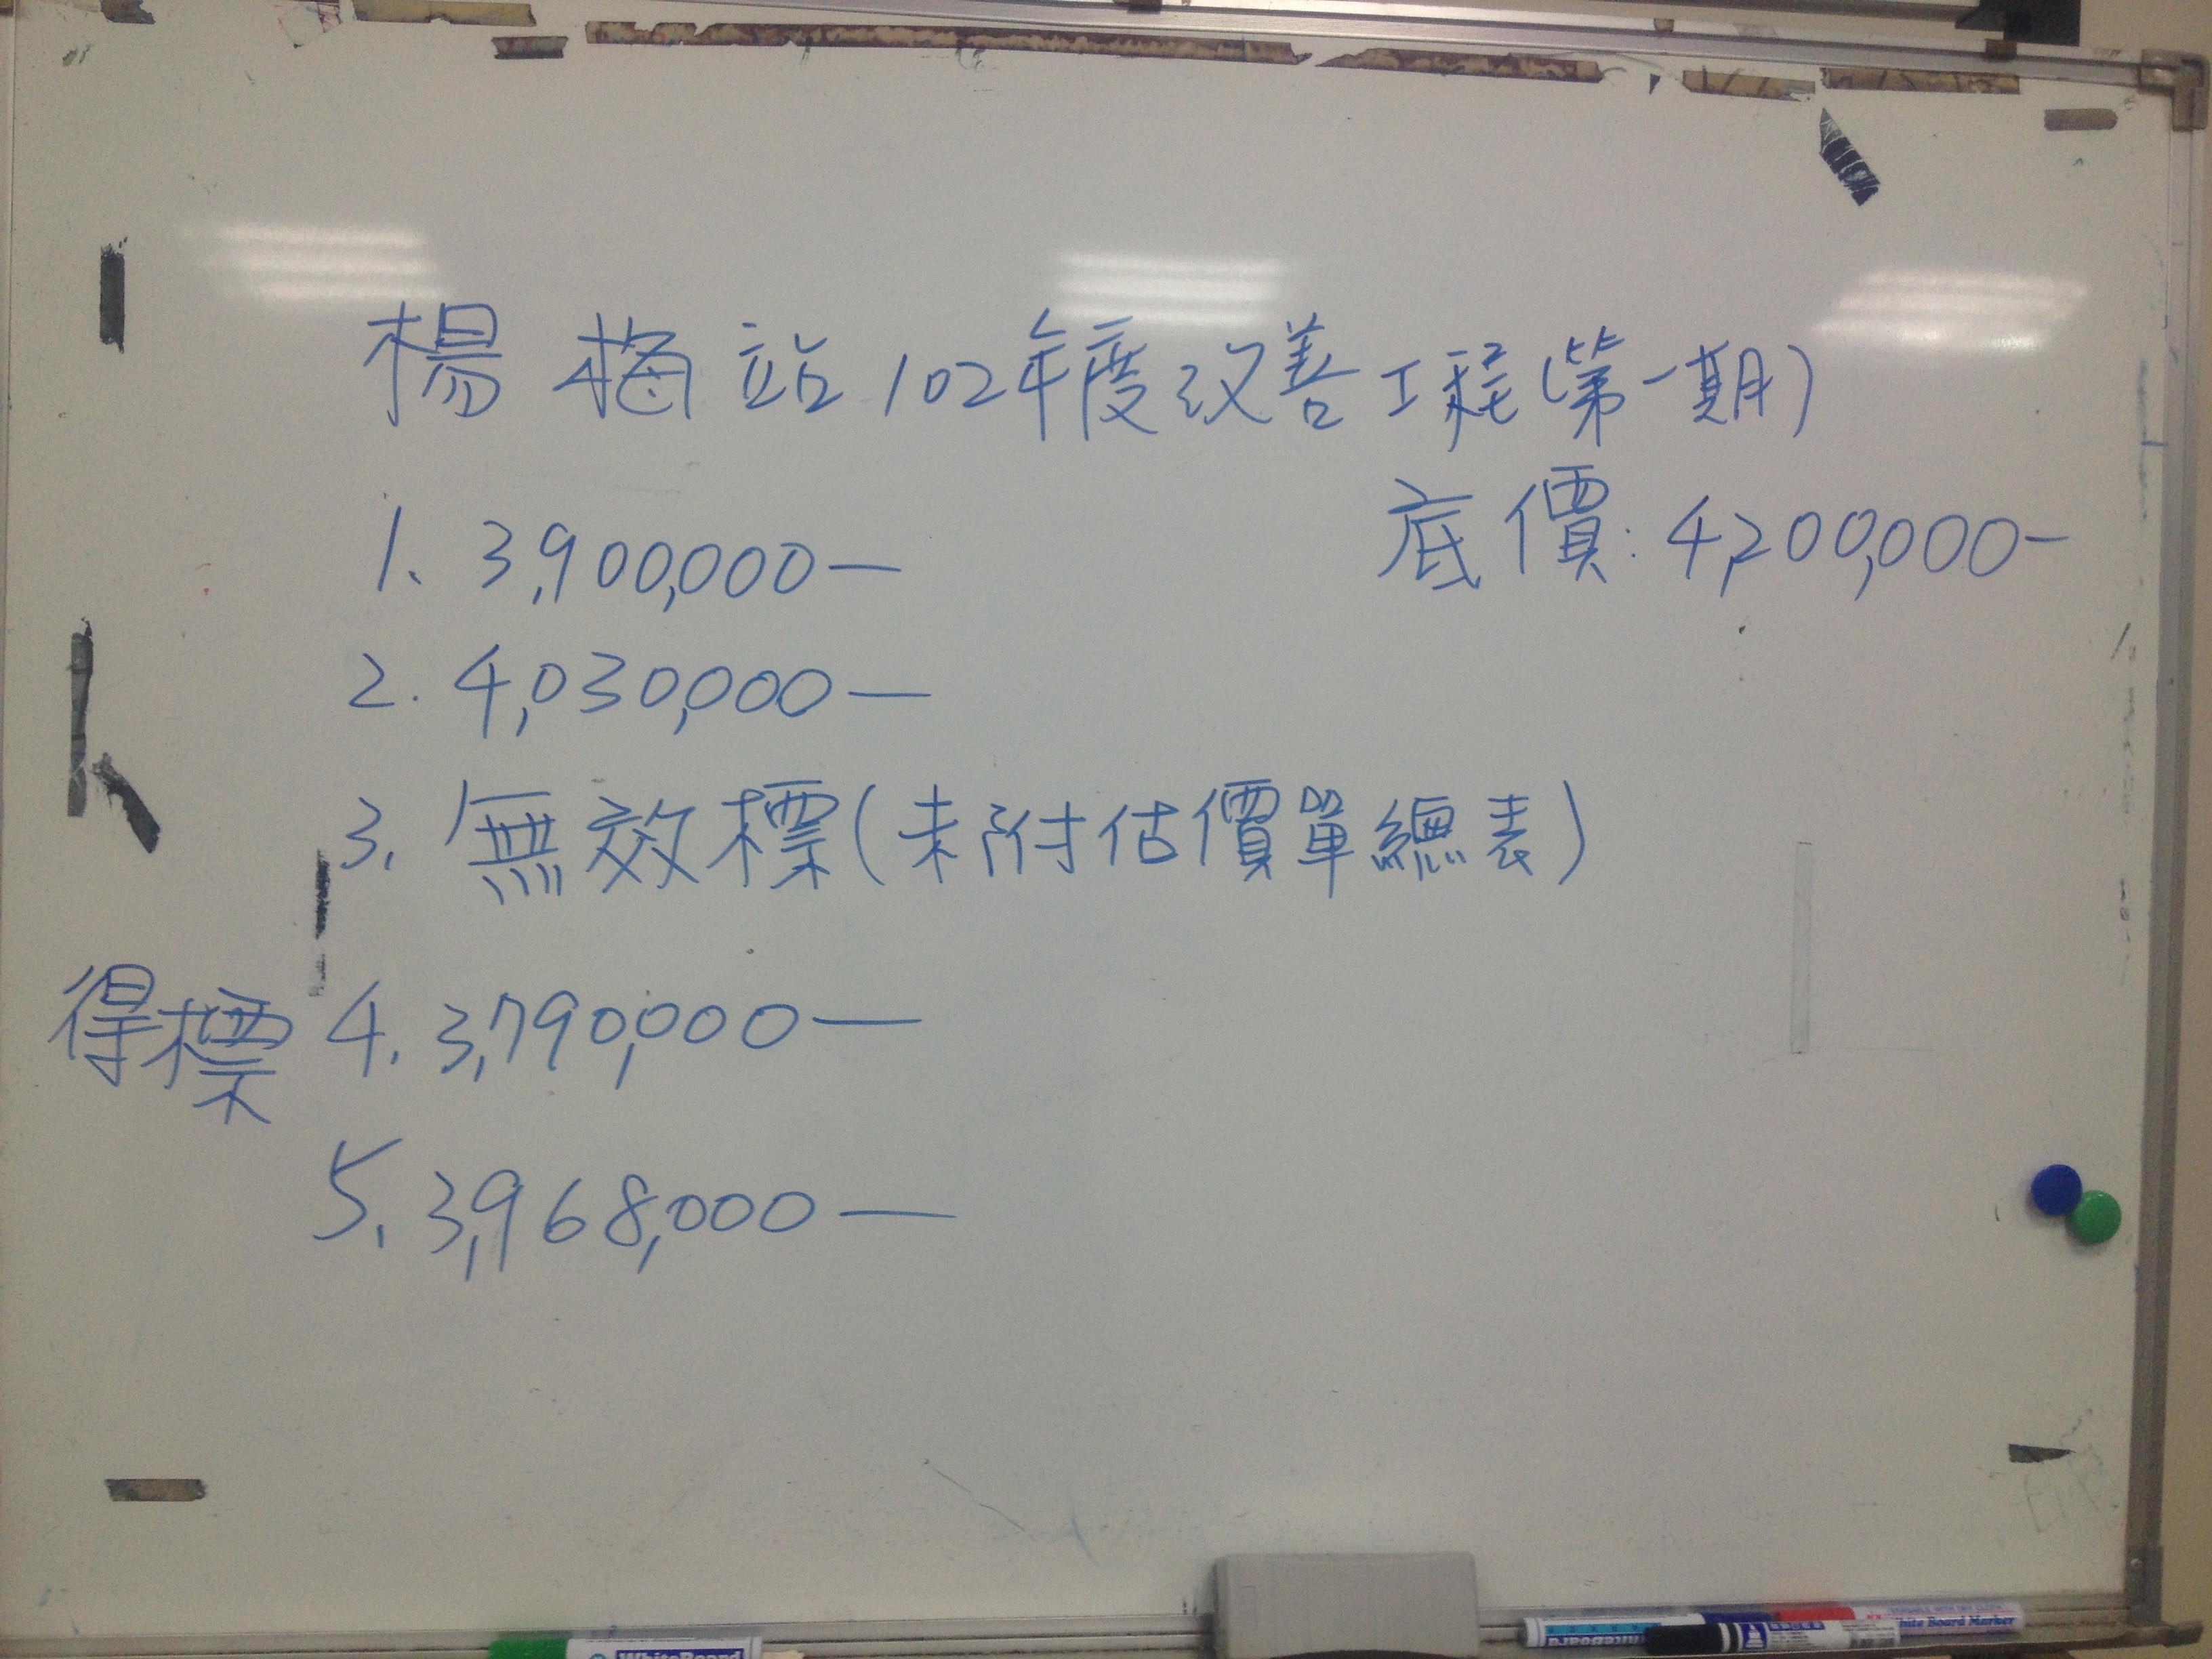 楊梅站102年度改善工程(第一期)
底價:4,200,000-
1、3,900,000-
2.4,030,000-
3.無效標(未附估價單總表)
得標 4.3,790,000-
5.3,968,000-
WhiteBoard
WhiteBoard
White Board Marker